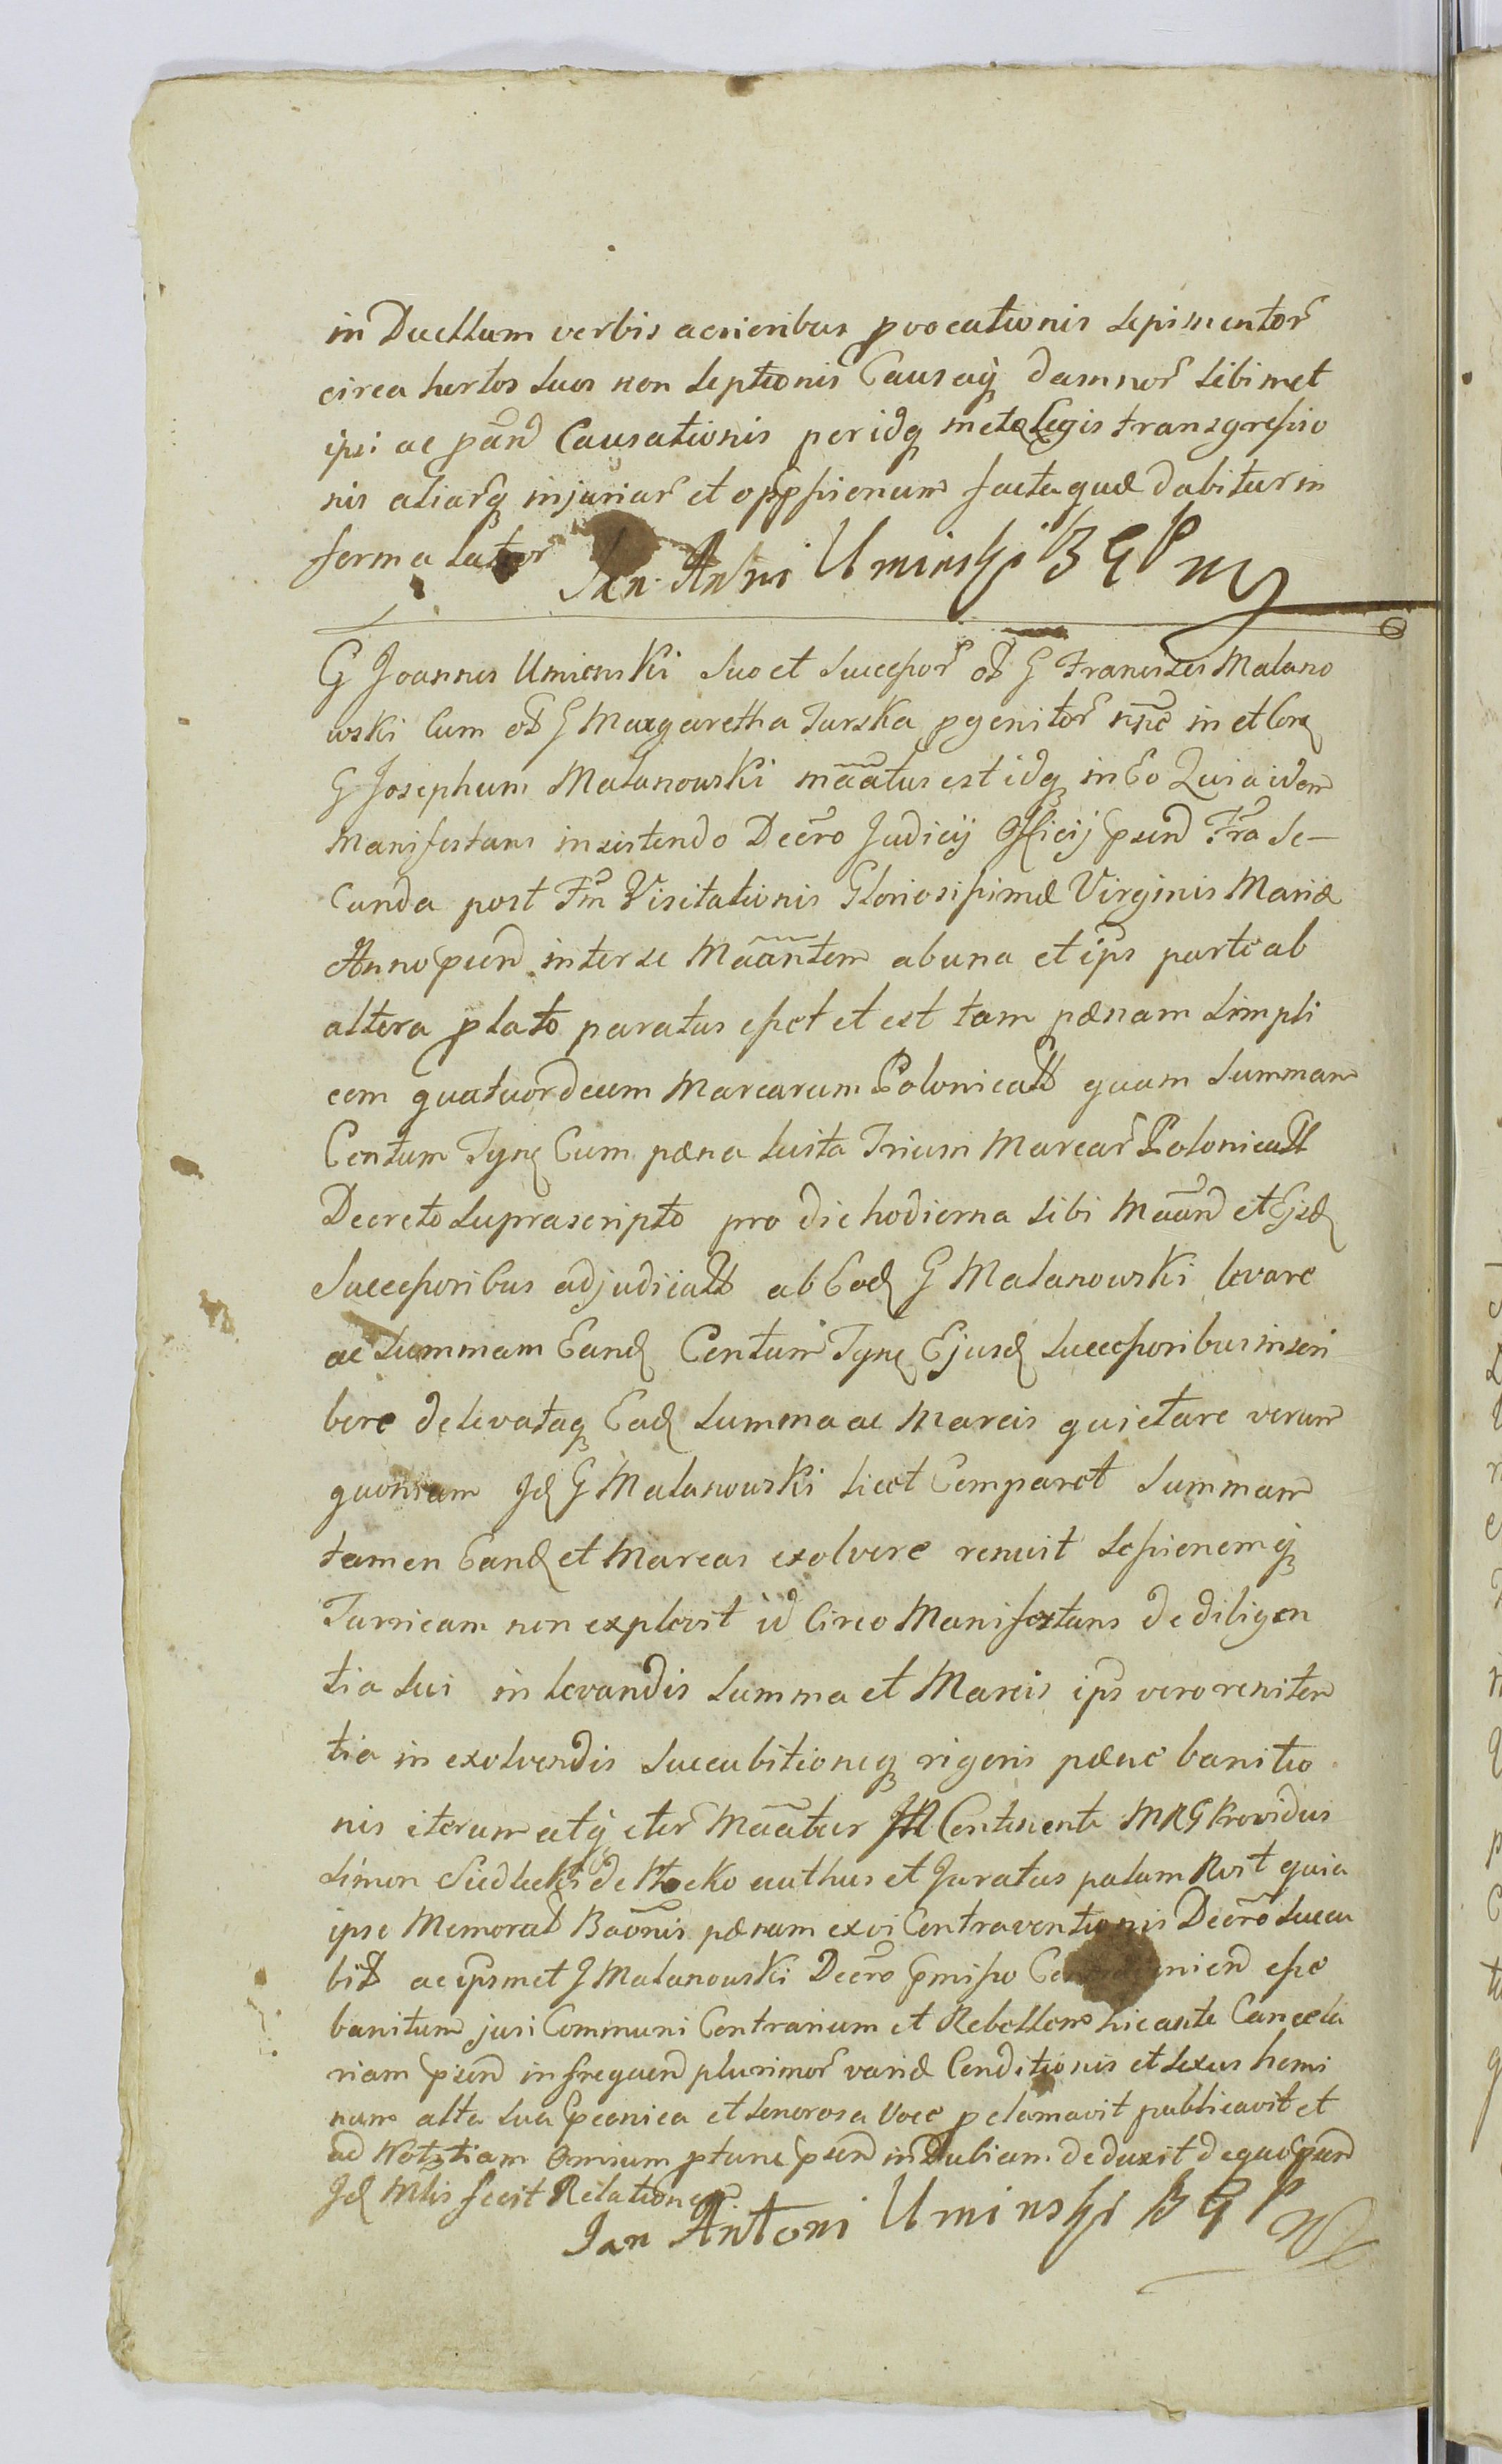 in Duellum verbis acrioribus provocationis sepimentor
circa hortos suos non septionis Causaq damnor sibimet
ipsi ac pand Causationis per idq metæ Legis transgressio
nis aliarq injuriar et oppssionum facta quæ dabitur in
forma lator
Jan Antni Uminski B G P mp
G Joannes Uminski suo et successor ol G Francisci Malano
wski cum ol G Margaretha Turska pgenitor nne in et Cora
G Josephum Malanowski maatus est idq in Eo Quia idem
Manifestans insistendo Decro Judicij Officij psend Fra Se-
cunda post Fm Visitationis Gloriosissimæ Virginis Mariæ
Anno psend inter se Maantem ab una et ips parte ab
altera plato paratus esset et est tam pænam simpli
cem quatuordecim Marcarum Polonicall quam Summam
Centum Tyne Cum pæna luita Trium Marcar Polonicall
Decreto suprascripto pro die hodierna sibi Maand et Ejsd
Successoribus adjudicall ab Eod G Malanowski levare
ac Summam Eand Centum Tyne Ejusd successoribus inscri
bere de levataq Ead Summa ac Marcis quietare verum
quoniam Jd G Malanowski licet Comparet Summam
tamen Eand et Marcas exolvere renuit sessionemq
Turricam non explevit id Circo Manifestans de diligen
tia sui in levandis Summa et Marcis ips vero reniten
tia in exolvendis succubitioneq rigoris pænæ banitio
nis iterum atq iter Maatur In Continenti MRG Providus
Simon Siedlecki de Płocko authus et Juratus palam Rost quia
ipse Memorat Baonis pænam ex vi Contraventionis Decro succu
bit ac ipsmet G Malanowski Decro pmisso esse
banitum juri Communi Contrarium et Rebellem hic ante Cancella
riam psend in frequend plurimor variæ Conditionis et sexus homi
num alta sua pconica et sonorosa voce pclamavit publicavit et
ad Notitiam Omnium ptunc psend indubiam deduxit de quo psend
Jd Mlis fecit Relationem
Jan Antoni Uminski B G P mp